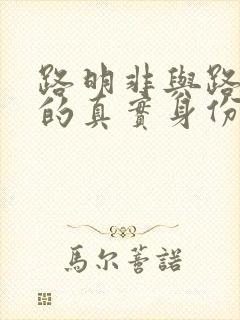 路明非與路
的真實身份
馬尔蒈諾